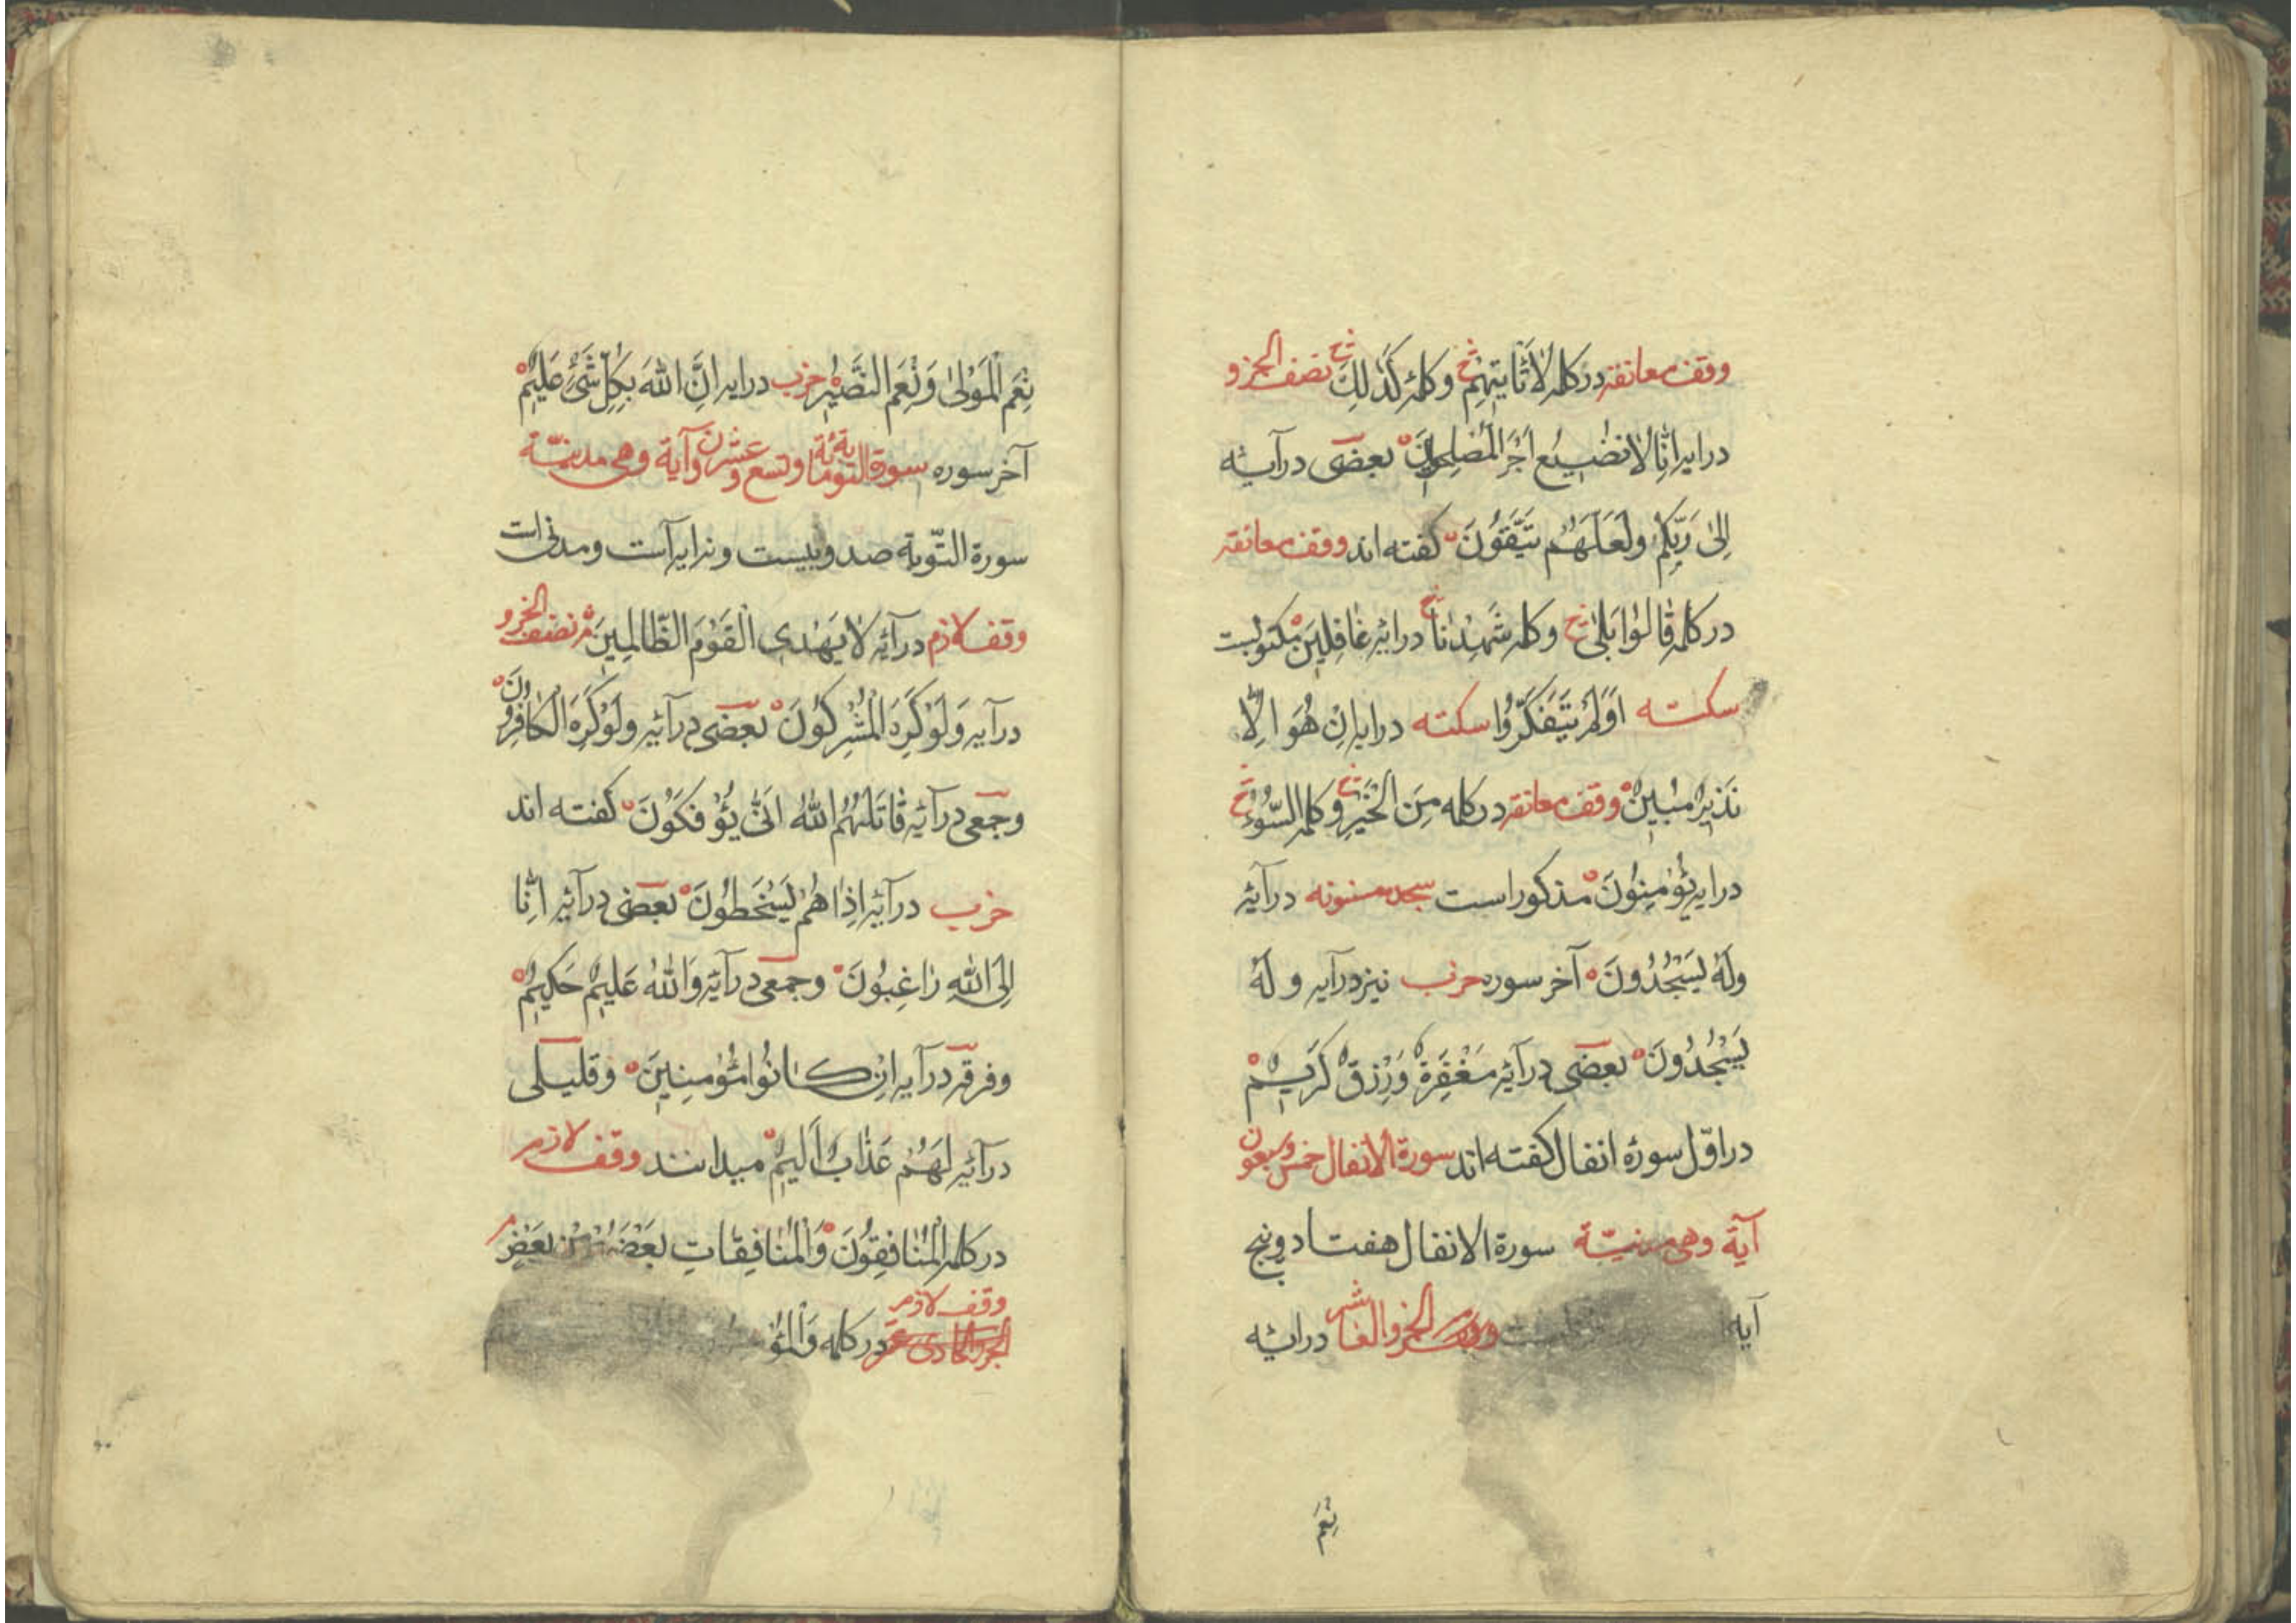 وقف معانقه در کلمه لَا تَأْتِيهِمْ وکلمه كَذَلِكَ نصف الجزو
درایه اِنَّا لَا نُضِيعُ اَجْرَ الْمُصْلِحِينَ بعضی در آیه
اِلٰى رَبِّكُمْ وَلَعَلَّهُمْ يَتَّقُونَ گفته اند وقف معانقه
در کلمه قَالُوا بَلٰى وکلمه شَهِدْنَا درایه غَافِلِينَ مکتوبست
سکته اَوَلَمْ يَتَفَكَّرُوا سکته درایه اِنْ هُوَ اِلَّا
نَذِيرٌ مُبِينٌ وقف معانقه در کلمه مِنَ الْخَيْرِ وکلمه السُّوءُ
درایه يُؤْمِنُونَ مذکور است سجده مسنونه در آیه
وَلَهُ يَسْجُدُونَ آخر سوره حزب نیز در آیه وَلَهُ
يَسْجُدُونَ بعضی در آیه مَغْفِرَةٌ وَرِزْقٌ كَرِيمٌ
در اوّل سورۀ انفال گفته اند سورة الانفال خمس وسبعون
آية وهی مدنيّة سورة الانفال هفتاد وپنج
آیه الجزو العاشر درایه
نِعْمَ
نِعْمَ الْمَوْلٰى وَنِعْمَ النَّصِيرُ حزب درایه اِنَّ اللّٰهَ بِكُلِّ شَیْءٍ عَلِيمٌ
آخر سوره سورة التوبة مائة وتسع وعشرون آية وهی مدنيّة
سورة التّوبة صد وبیست ونه آیه است ومدنی است
وقف لازم در آیه لَا يَهْدِی الْقَوْمَ الظَّالِمِينَ نصف الجزو
در آیه وَلَوْ كَرِهَ الْمُشْرِكُونَ بعضی در آیه وَلَوْ كَرِهَ الْكَافِرُونَ
وجمعی در آیه قَاتَلَهُمُ اللّٰهُ اَنّٰى يُؤْفَكُونَ گفته اند
حزب در آیه اِذَا هُمْ يَسْخَطُونَ بعضی در آیه اِنَّا
اِلَى اللّٰهِ رَاغِبُونَ وجمعی در آیه وَاللّٰهُ عَلِيمٌ حَكِيمٌ
وفرقه در آیه اِنْ كَانُوا مُؤْمِنِينَ وقلیلی
در آیه لَهُمْ عَذَابٌ اَلِيمٌ میدانند وقف لازم
در کلمه الْمُنَافِقُونَ وَالْمُنَافِقَاتِ بَعْضُهُمْ مِنْ بَعْضٍ
وقف لازم
در کلمه